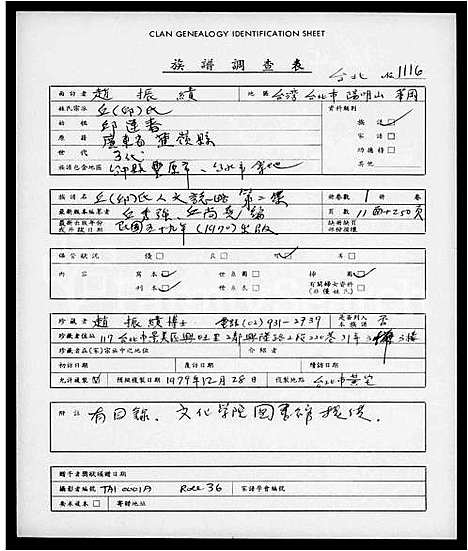 CLAN GENEALOGY IDENTIFICATION SHEET
族譜調查表
台北 № 1116
面訪者 趙振績 地區 台灣台北市陽明山華岡
姓氏宗派 丘(邱)氏 資料類別
始祖 邱逢春 撰送
原籍 廣東省蕉嶺縣 家譜
世代 3代 功德榜
族譜包含地區 台中縣豐原市、台北市等地 其他
族譜名 丘(邱)氏人文誌略 第二集 冊卷數 1 冊卷
最新版本編著者 丘秀強、丘尚堯編 頁數 11面+250頁
最新作版年份或出版日期 民國五十九年(1970)出版 缺冊缺頁部份說擇
保管狀況 優 良 可 劣
內容 寫本 世系圖 抽圖
刊本 世系表 有關婦女資料(非僅姓氏)
珍藏者 趙振績博士 電話(02)931-2939 是否列入本族譜 否
珍藏者住址 117台北市景美區興旺里2鄰興隆路2段220巷31弄3樓
珍藏者在(宗)家族中之地位 介紹者
初訪日期 覆訪日期 續訪日期
允許複製 預擬複製日期 1979年12月28日 複製地點 台北市黃宅
附註 有目錄、文化學院圖書館提供.
贈予者獎狀頒贈日期
攝影者編號 TAI 0001A Roll 36 家譜學會編號
要求複本 寄贈地址